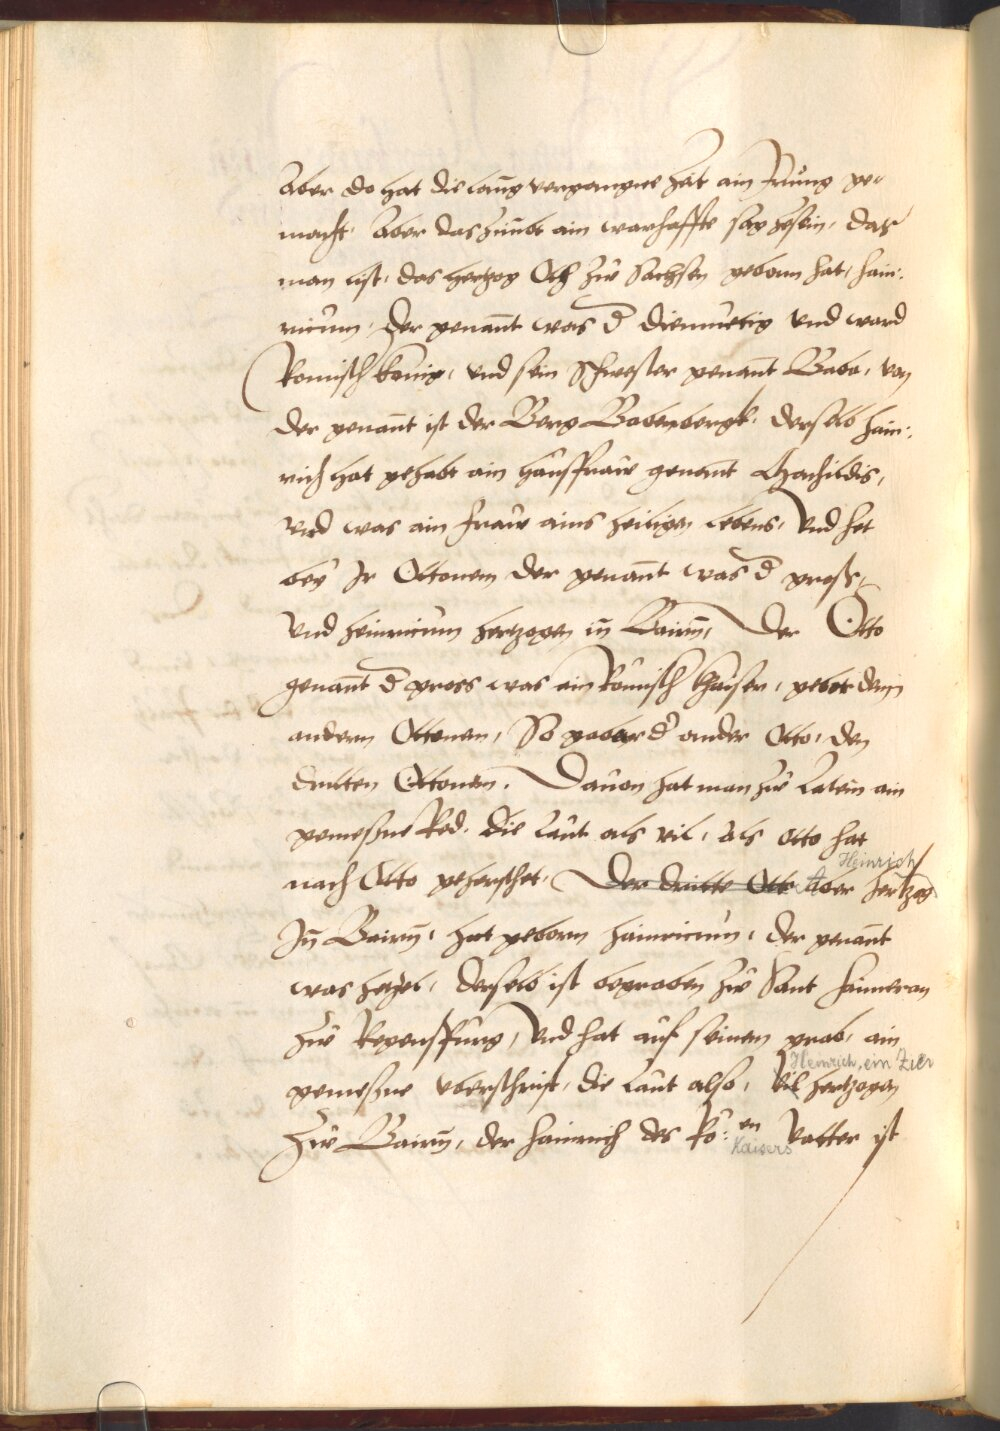 Aber do hat die lanng vergangne Zeit ain Irrung ge-
macht. Aber das zimbt ain warhaffte sag zesein, das
man list, das hertzog Oth zu Sachsen geborn hat, Hain:
ricum, der genannt was d diemuetig vnd ward
Romisch konig, vnd sein Schwester genannt Baba, von
der genannt ist der Berg Babenbergk. derselb Hain:
rich hat gehabt ain haussfraw genannt Machildis,
vnd was ain fraw ains heiligen lebens, vnd het
bey Ir Ottonem der genannt was d gross,
vnd heinricum hertzogen in Bairn, Der Otto
genannt d gross was ain Romisch Khaiser, gebar den
andern Ottonem, So gebar d ander Otto, den
dritten Ottonem. Dauon hat man zu Latein ain
gemessne Red. die laut als vil, als Otto hat
nach Otto geherschet. Der dritte Ott Aber hertzog Heinrich
In Bairn, hat geborn hainricum, der genannt
was hezel, derselb ist begraben zu Sant Haimeran
zu Regenspurg, vnd hat auf seinem grab, ain
gemessne vberschrift, die laut also, Heinrich, ein Zier vil hertzogen
zu Bairn, der hainrich des Ro: en Kaisers vatter ist